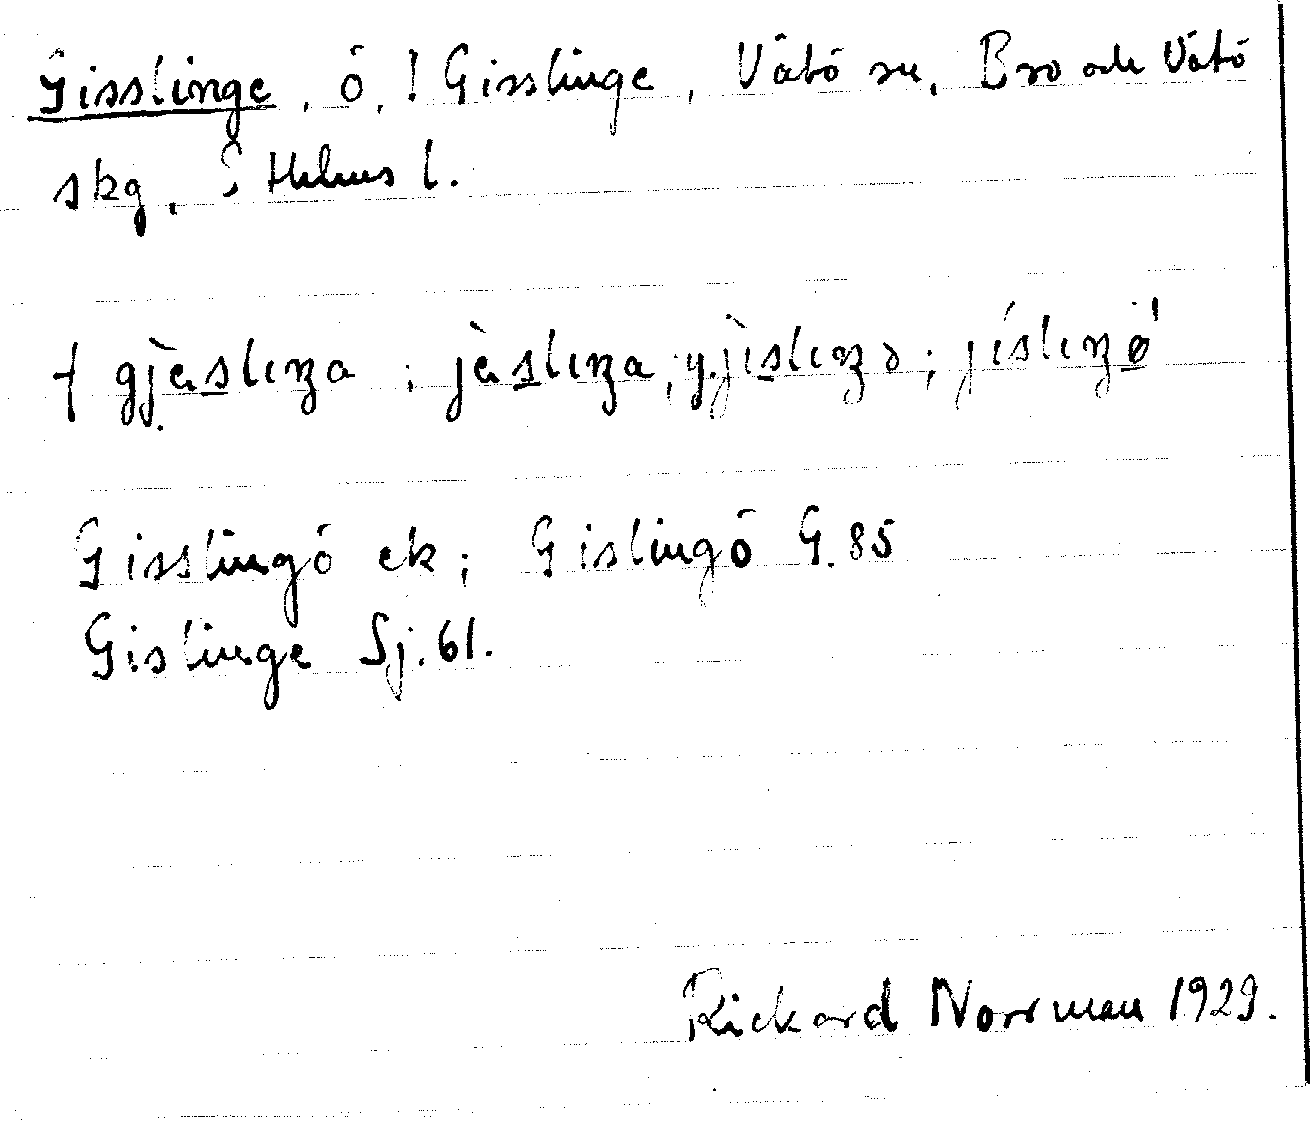 Gisslinge, ö, ! Gisslinge, Vätö sn, Bro och Vätö
skg, S Hlms l.
† gjɛ̀slɩŋa ; jɛ̀slɩŋa ; y. jìslɩŋə ; jíslɩŋø̀'
Gisslingö ek ; Gislingö G. 85
Gislinge Sj. 61.
Rickard Norrman 1929.